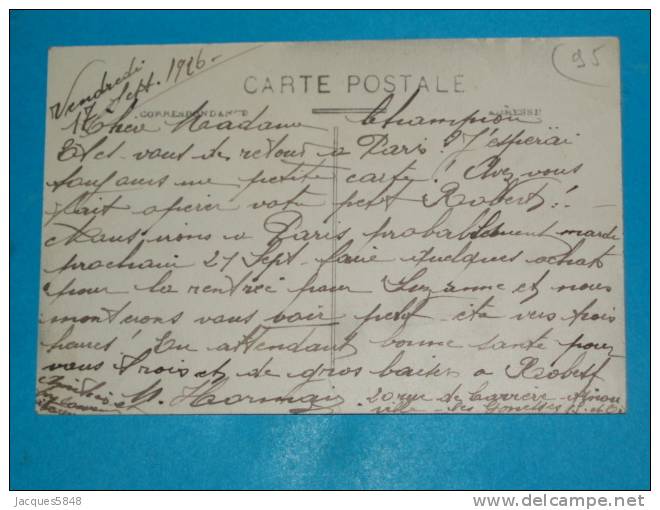 95
Vendredi
17 Sept. 1926 -
CARTE POSTALE
CORRESPONDANCE ADRESSE
Chere Madame Champion
Etes-vous de retour a Paris ? J'esperai
toujours une petite carte ! Avez vous
fait operer votre petit Robert !!
Nous irons a Paris probablement mardi
prochain 21 Sept faire quelques achat
pour la rentrée pour Suzanne et nous
monterons vous voir peut etre vers trois
heures ! En attendant bonne santé pour
vous trois et de gros baisers a Robert
Amitiés
20 rue de Carriere Arnou
ville - les Gonesses S. et O.
Jacques5848
www.delcampe.net